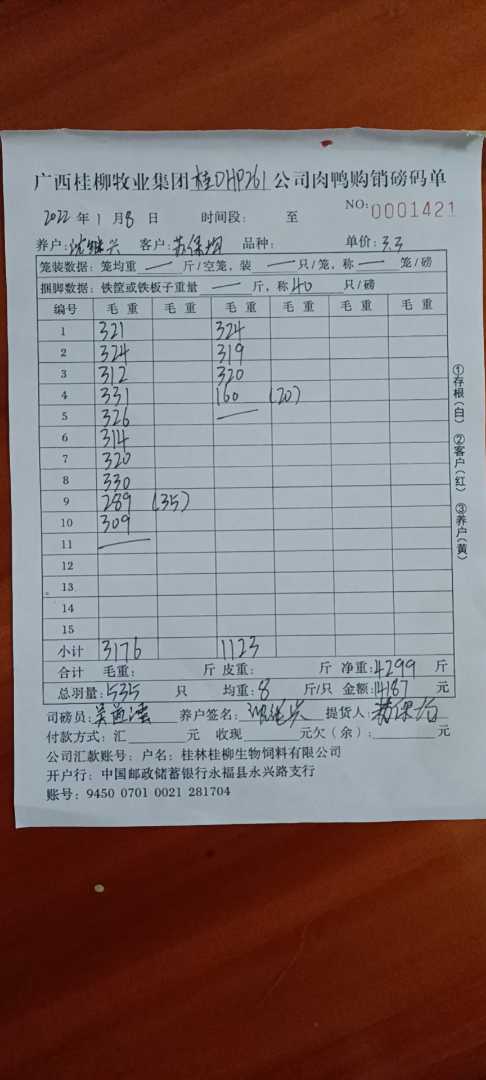 广西桂柳牧业集团桂DHP261公司肉鸭购销磅码单
2022年1月8日 时间段: 至 NO:0001421
养户:沈继兴 客户:苏保均 品种: 单价:3.3
笼装数据: 笼均重 — 斤/空笼,装 — 只/笼,称 — 笼/磅
捆脚数据: 铁筐或铁板子重量 — 斤,称40只/磅
编号 毛重 毛重 毛重 毛重 毛重 毛重
1 321 324
2 324 319
3 312 320
4 331 160 (20)
5 326 —
6 314
7 320
8 330
9 289 (35)
10 309
11 —
12
13
14
15
小计 3176 1123
合计 毛重: 斤 皮重: 斤 净重:4299 斤
总羽量:535 只 均重:8 斤/只 金额:14187 元
司磅员: 养户签名: 提货人:
付款方式: 汇 元 收现 元欠(余): 元
公司汇款账号: 户名: 桂林桂柳生物饲料有限公司
开户行: 中国邮政储蓄银行永福县永兴路支行
账号: 9450 0701 0021 281704
①存根(白) ②客户(红) ③养户(黄)